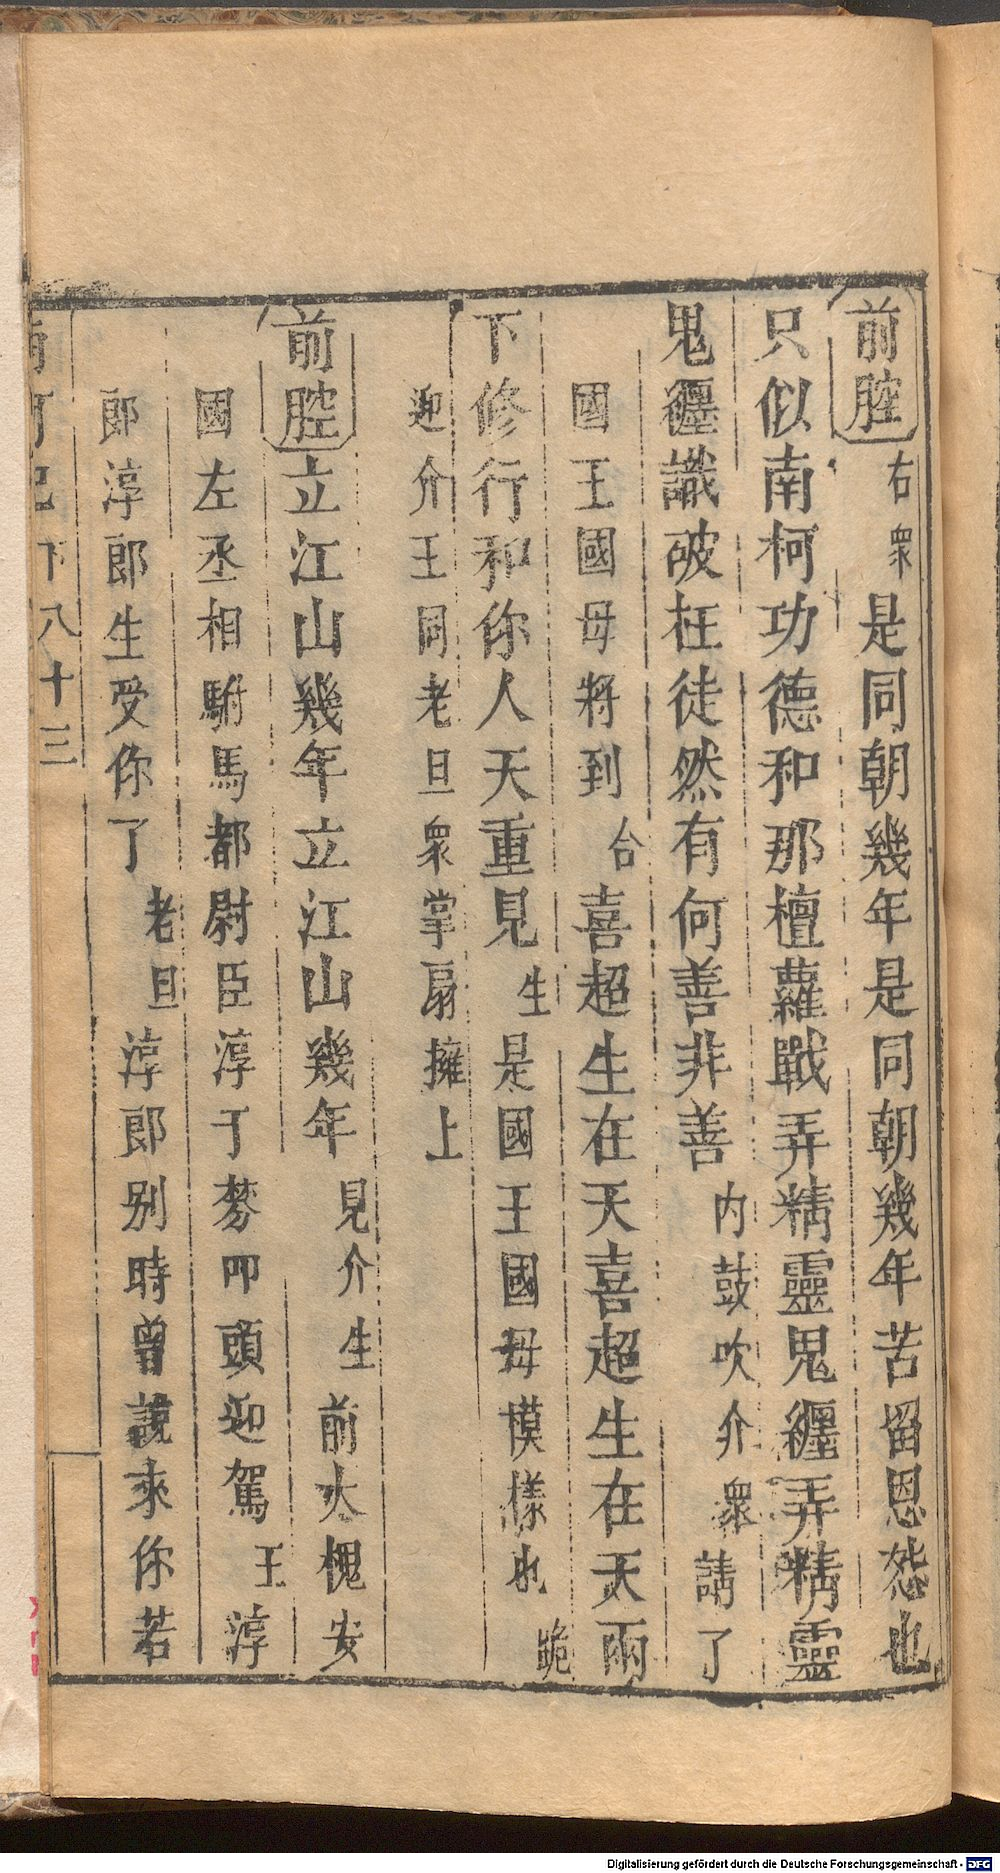 前腔右衆是同朝幾年是同朝幾年苦畱恩怨也
只似南柯功德和那檀蘿戰弄精靈鬼纒弄精靈
鬼纒識破枉徒然有何善非善内鼓吹介衆請了
國王國母將到合喜超生在天喜超生在天兩
下修行和你人天重見生是國王國母模樣也跪
迎介王同老旦衆掌扇擁上
前腔立江山幾年立江山幾年見介生前大槐安
國左丞相駙馬都尉臣淳于棼叩頭迎駕王淳
郎淳郎生受你了老旦淳郎别時曾說來你若
南柯記下八十三
Digitalisierung gefördert durch die Deutsche Forschungsgemeinschaft - DFG